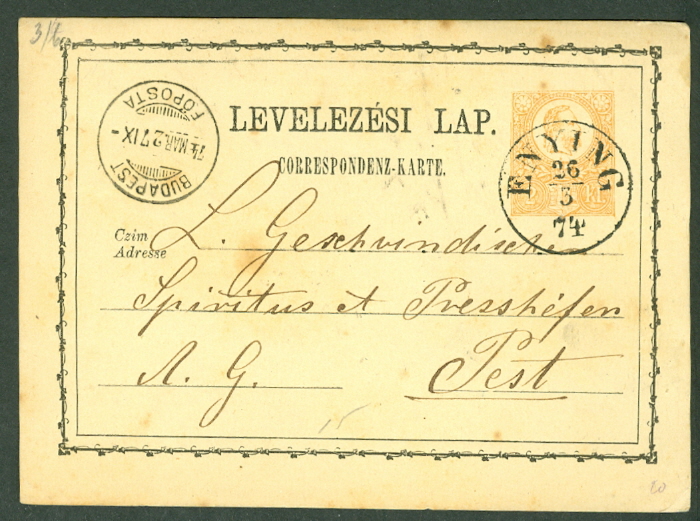 3/6
BUDAPEST
74 MAR. 27 IX -
FŐPOSTA
LEVELEZÉSI LAP.
CORRESPONDENZ-KARTE.
ENYING
26
3
74
Czim
Adresse
L. Geschvindische
Spiritus et Presshéfen
A. G. Pest